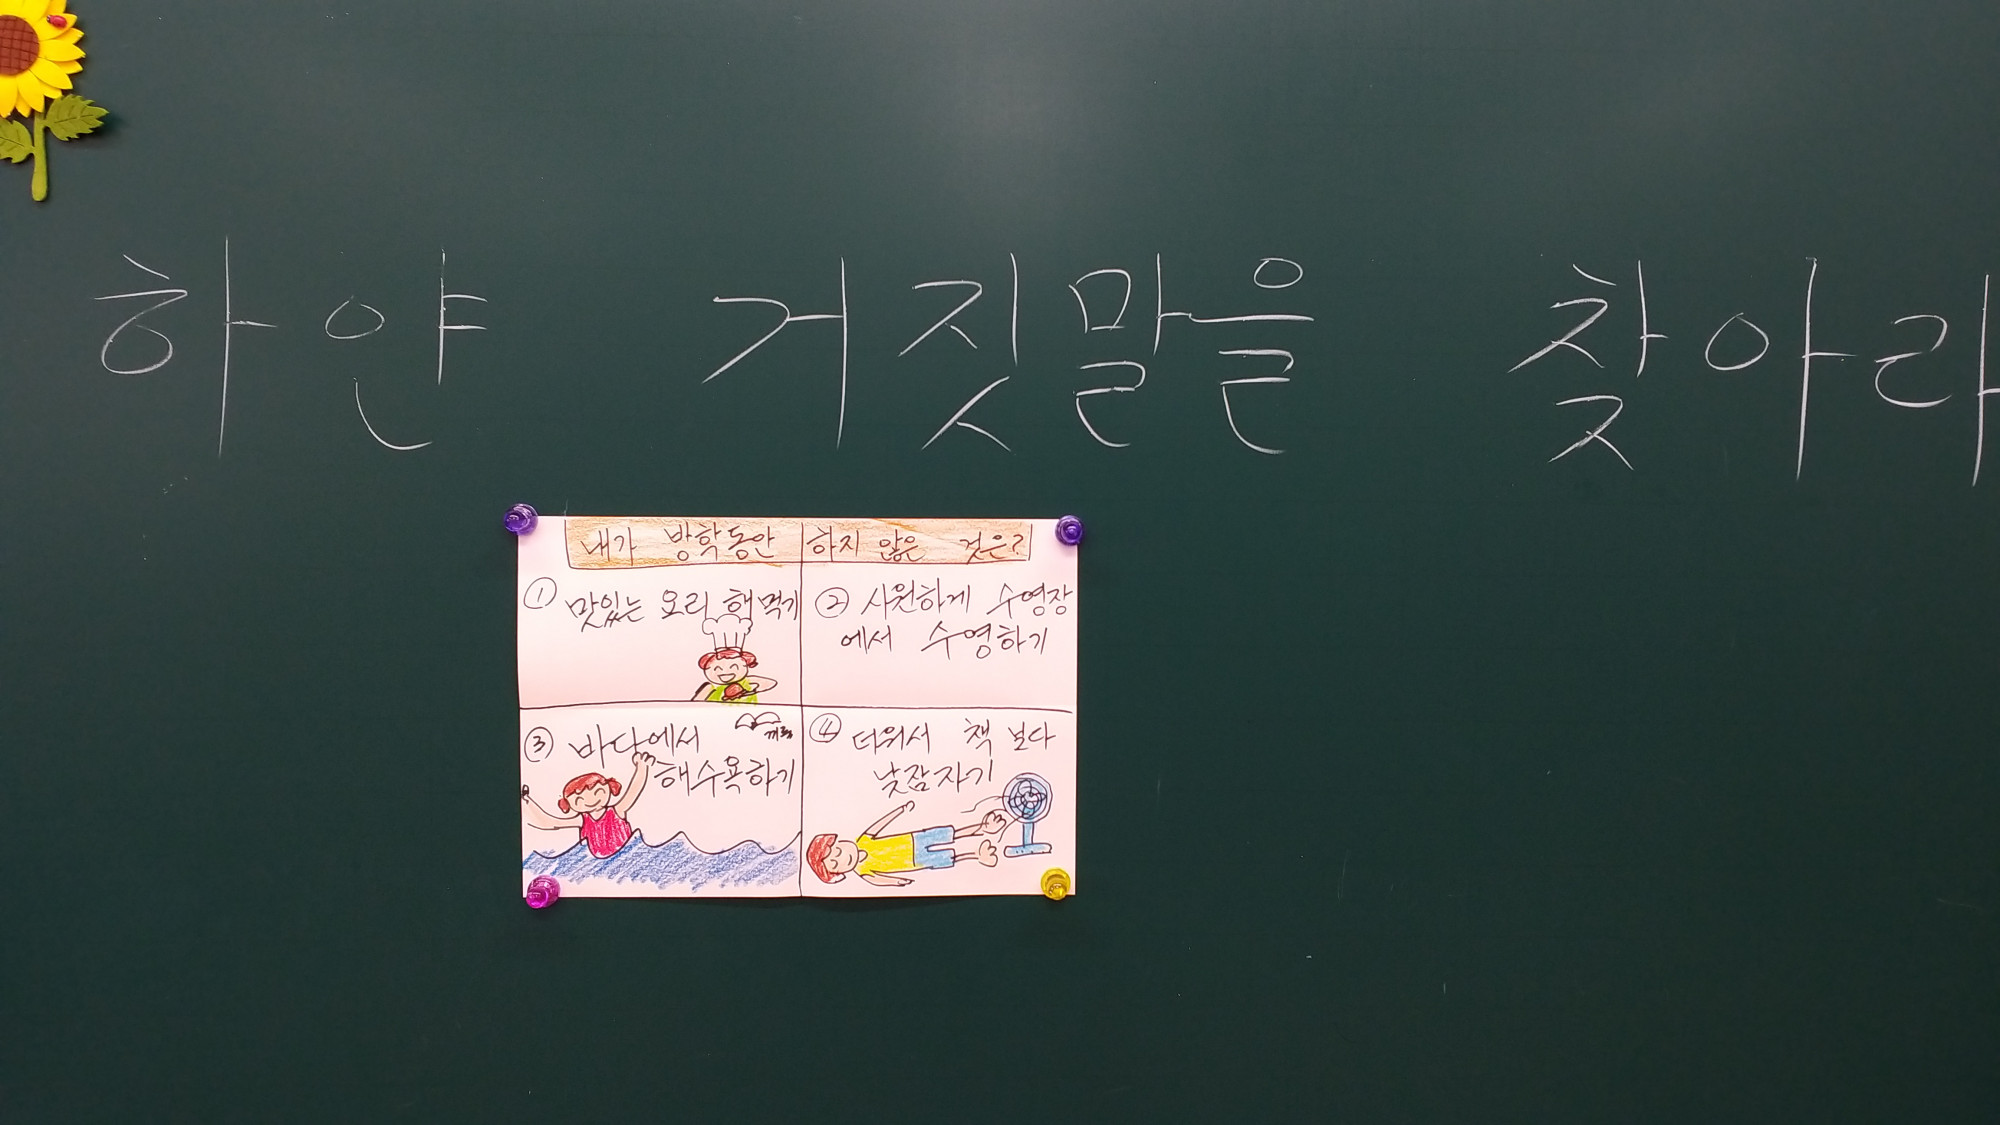 하얀 거짓말을 찾아라
내가 방학동안 하지 않은 것은?
① 맛있는 요리 해먹기
② 시원하게 수영장
에서 수영하기
③ 바다에서
해수욕하기
끼룩
④ 더워서 책 보다
낮잠자기